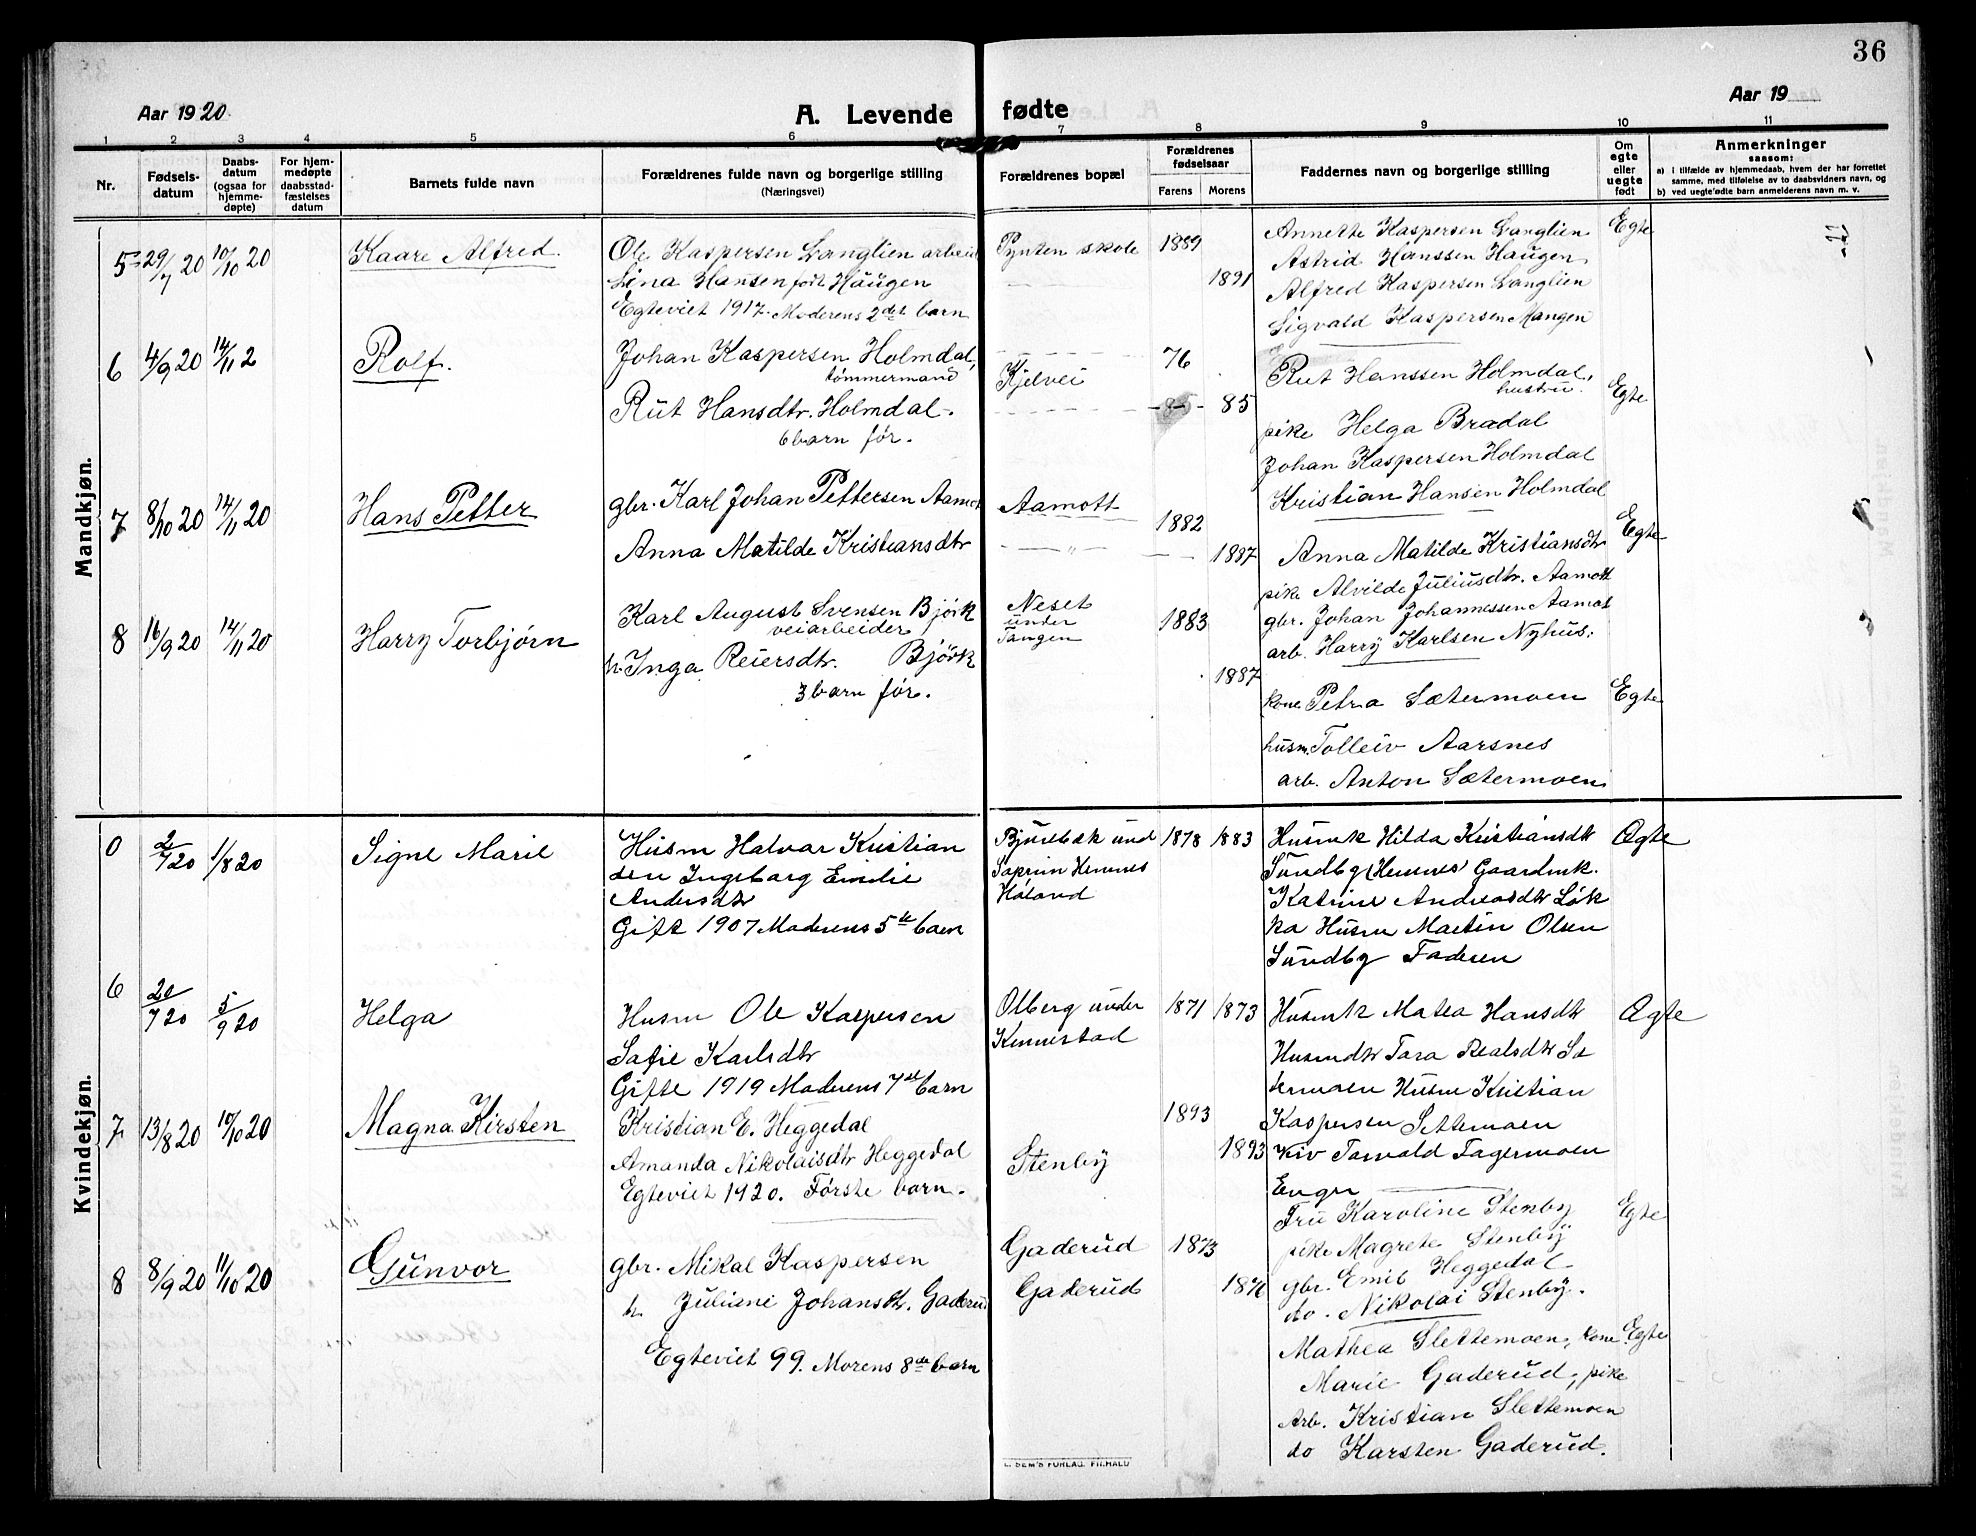 36
Aar 1920.
A. Levende fødte
Aar 19
1 2 3 4 5 6 7 8 9 10 11
Nr.
Fødsels-
datum
Daabs-
datum
(ogsaa for
hjemme-
døpte)
For hjem-
medøpte
daabsstad-
fæstelses
datum
Barnets fulde navn
Forældrenes fulde navn og borgerlige stilling
(Næringsvei)
Forældrenes bopæl
Forældrenes
fødselsaar
Farens Morens
Faddernes navn og borgerlige stilling
Om
egte
eller
uegte
født
Anmerkninger
saasom:
a) i tilfælde av hjemmedaab, hvem der har forrettet
samme, med tilføielse av to daabsvidners navn, og
b) ved uegtefødte barn anmelderens navn m. v.
Mandkjøn.
5 29/7 20 10/10 20
Kaare Alfred.
Ole Kaspersen Langlien arbeid
Lina Hansen født Haugen
Egteviet 1917. Moderens 2det barn
Pynten skole 1889
1891
Annette Kaspersen Langlien
Astrid Hanssen Haugen
Alfred Kaspersen Langlien
Sigvald Kaspersen Mangen
Egte
6 4/9 20 14/11 2
Rolf.
Johan Kaspersen Holmdal,
tømmermand
Rut Hansdtr. Holmdal.
6 barn før.
Kjelvei
76
85
Rut Hanssen Holmdal,
hustru.
pike Helga Bradal
Johan Kaspersen Holmdal
Kristian Hansen Holmdal
Egte
7 8/10 20 14/11 20
Hans Petter
gbr. Karl Johan Pettersen Aamot
Anna Matilde Kristiansdtr
Aamott
1882
1887
Anna Matilde Kristiansdtr
pike Alvilde Juliusdtr. Aamott
gbr. Johan Johannessen Aamot
arb. Harry Karlsen Nyhus.
Egte
8 16/9 20 14/11 20
Harry Torbjørn
Karl August Svensen Bjørk
veiarbeider
h. Inga Reiersdtr. Bjørk
3 barn før.
Neset
under
Tangen
1883
1887
kone Petra Sætermoen
husm. Tolleiv Aarsnes
arb. Anton Sætermoen
Egte
Kvindekjøn.
2/7 20 1/8 20
Signe Marie
Husm Halvar Kristian
sen Ingeborg Emilie
Andersdtr
Gift 1907 Moderens 5te barn
Hemnes
Høland
1878 1883
Husmk Hilda Kristiansdtr
Sundby (Hemnes) Gaardmk.
Katrine Andreasdtr Løk
ka Husm Martin Olsen
Sundby Faderen
Ægte
6 20/7 20 5/9 20
Helga
Husm Ole Kaspersen
Sofie Karlsdtr
Gifte 1919 Moderens 7de barn
Olberg under
Kinnestad
1871 1873
Husmk Matea Hansdtr
Husmdtr Tara Realsdtr Sæ
termoen Husm Kristian
Kaspersen Settemoen
Torvald Fagermoen
Enger
Ægte
7 13/8 20 10/10 20
Magna Kirsten
Kristian E. Heggedal
Amanda Nikolaisdtr Heggedal
Egteviet 1920. Første barn.
Stenby
1893
1893
Fru Karoline Stenby
pike Magrete Stenby
gbr. Emil Heggedal
do. Nikolai Stenby.
Egte
8 8/9 20 11/10 20
Gunvor
gbr. Mikal Kaspersen
h. Juliane Johansdtr. Gaderud
Egteviet 99. Morens 8de barn
Gaderud 1873
Gaderud 1876
Mathea Slettemoen, kone
Marie Gaderud, pike
Arb. Kristian Slettemoen
do Karsten Gaderud.
Egte
SEM'S FORLAG. FR.HALD